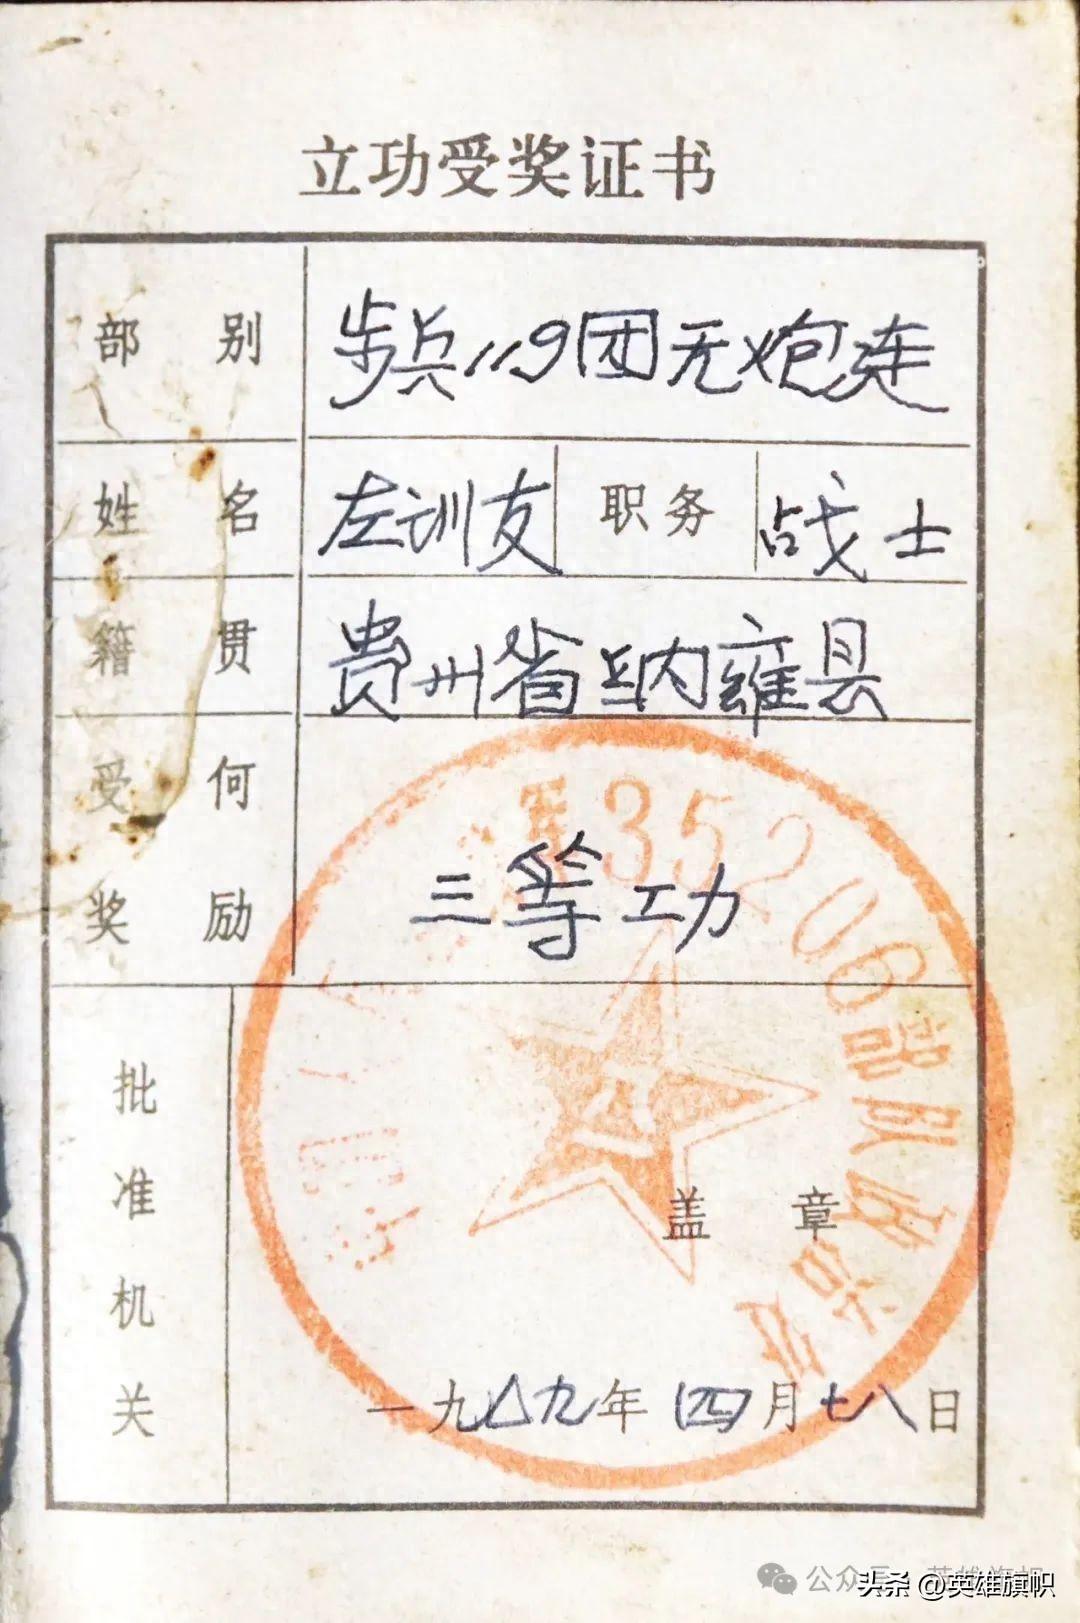 立功受奖证书
部别 步兵119团无炮连
姓名 左训友 职务 战士
籍贯 贵州省纳雍县
受何奖励 三等功
35206部队政治处
批准机关
盖章
一九八九年四月十八日
公众号
头条 @英雄旗帜